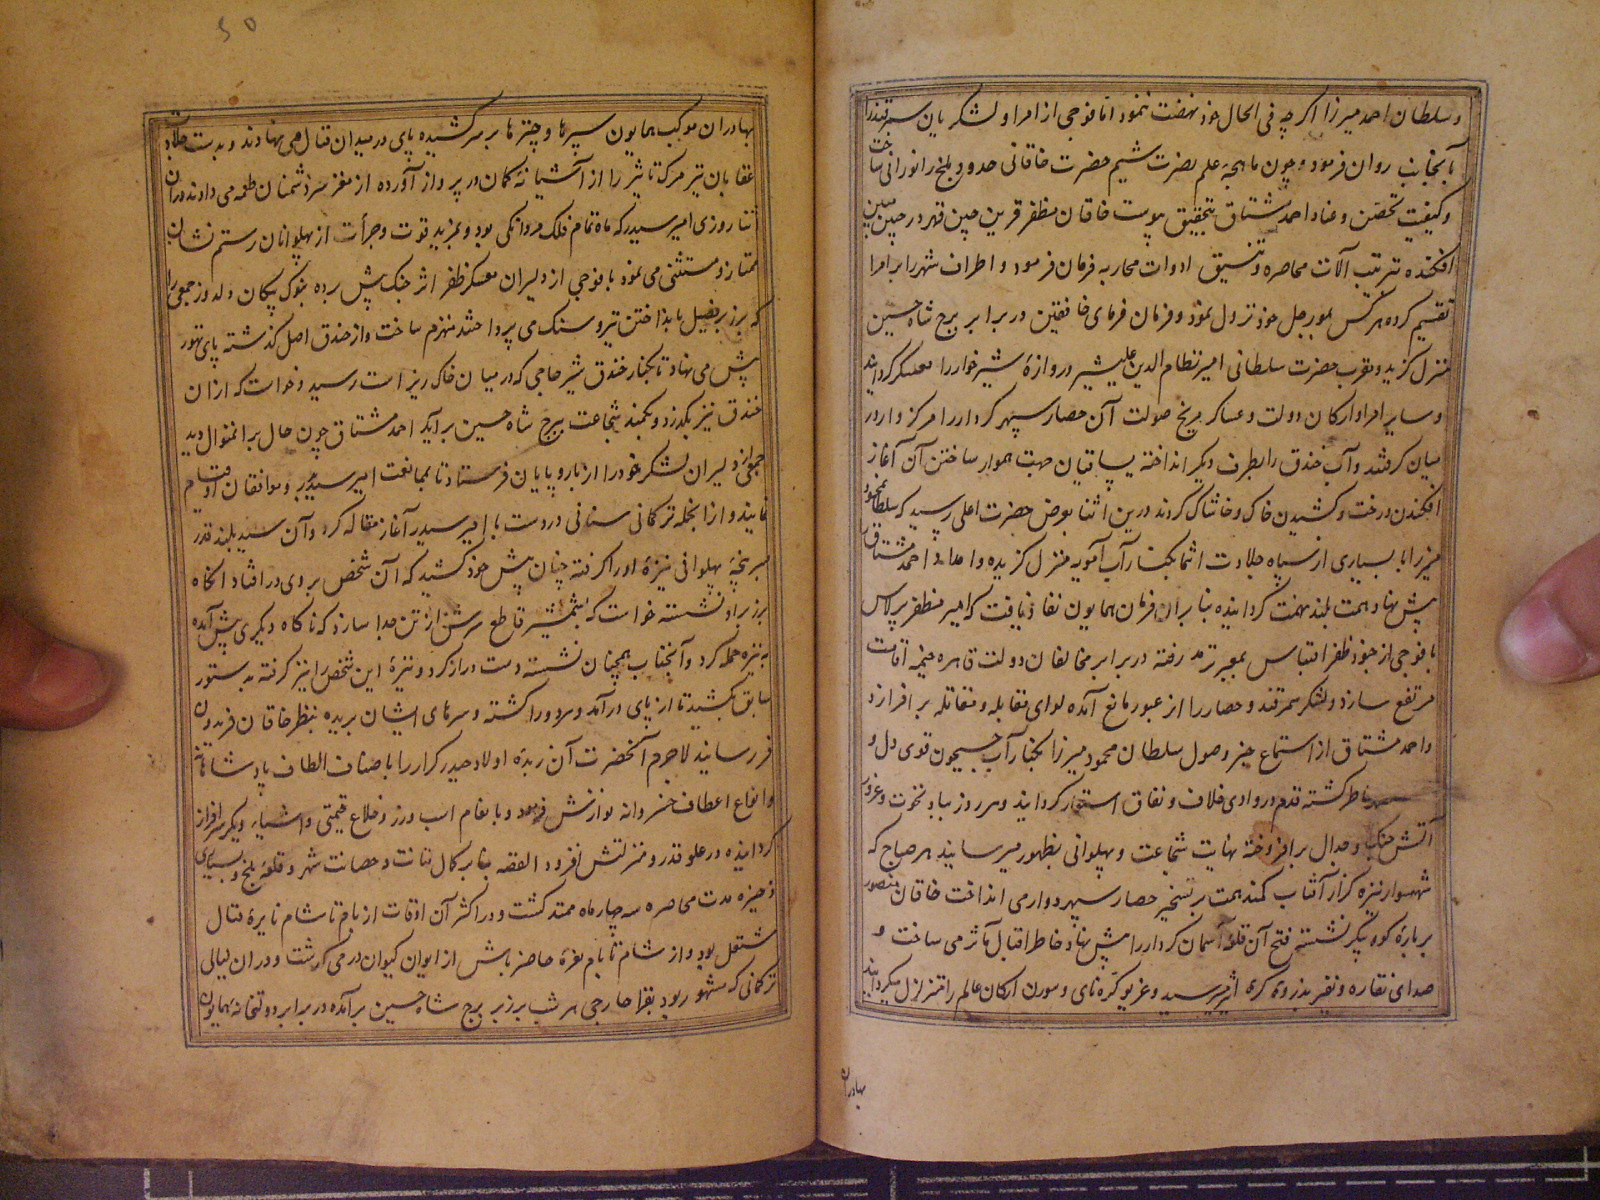 و سلطان احمد میرزا اکر چه فی الحال خود نهضت ننمود اما فوجی از امرا و لشکریان سمرقند را
بآنجانب روان فرمود و چون ماهچهٔ علم نصرت شیم حضرت خاقانی حدود بلخ را نورانی ساخت
و کیفیت تحصن و عناد احمد مشتاق بتحقیق پیوست خاقان مظفر قرین چین قهر در جبین مبین
افکنده بترتیب آلات محاصره و تنسیق ادوات محاربه فرمان فرمود و اطراف شهر را بر امرا
تقسیم کرده هر کس بمورجل خود نزول نمود و فرمان فرمای خافقین در برابر برج شاه حسین
منزل کزید و مقرب حضرت سلطانی امیر نظام الدین علیشیر دروازهٔ شیرخوار را معسکر کردانید
و سایر امرا و ارکان دولت و عساکر مریخ صولت آن حصار سپهر کردار را مرکز وار در
میان کرفتند و آب خندق را بطرف دیکر انداخته یساقیان جهت هموار ساختن آن آغاز
افکندن درخت و کشیدن خاک و خاشاک کردند درین اثنا بعرض حضرت اعلی رسید که سلطان محمود
میرزا با بسیاری از سپاه جلادت انتما بکنار آب آمویه منزل کزیده و امداد احمد مشتاق را
پیش نهاد همت بلند نهمت کردانیده بنابر آن فرمان همایون نفاذ یافت که امیر مظفر برلاس
با فوجی از جنود ظفر اقتباس بمعبر ترمد رفته در برابر مخالفان دولت قاهره خیمه اقامت
مرتفع سازد و لشکر سمرقند و حصار را از عبور مانع آمده لوای مقابله و مقاتله بر افرازد
و احمد مشتاق از استماع خبر وصول سلطان محمود میرزا بکنار آب جیحون قوی دل و
خاطر کشته قدم در وادی خلاف و نفاق استوار کردانید و هر روز بباد نخوت و غرور
آتش جنک و جدال بر افروخته نهایت شجاعت و پهلوانی بظهور میرسانید هر صباح که
شهسوار نیزه کزار آفتاب کمند همت بر تسخیر حصار سپهر دوار می انداخت خاقان منصور
بر بارهٔ کوه پیکر نشسته فتح آن قلعهٔ آسمان کردار را پیش نهاد خاطر اقبال مآثر می ساخت و
صدای نقاره و نفیر بذروهٔ کرهٔ اثیر میرسید و غریو کره نای و سورن ارکان عالم را متزلزل میکردانید
بهادران
بهادران موکب همایون سپرها و چترها بر سر کشیده پای در میدان قتال می نهادند و بدست جلادت
عقابان تیر مرک تاثیر را از آشیانهٔ کمان در پرواز آورده از مغز سر دشمنان طعمه می دادند در آن
اثنا روزی امیر سیدر که ماه تمام فلک مردانکی بود و بمزید قوت و جرأت از پهلوانان رستم نشان
ممتاز و مستثنی می نمود با فوجی از دلیران معسکر ظفر اثر جنک پیش برده بنوک پیکان دلدوز جمعی را
که بر زبر فصیل بانداختن تیر و سنک می پرداختند منهزم ساخت و از خندق اصل کذشته پای تهور
پیش می نهاد تا بکنار خندق شیر حاجی که در میان خاک ریز است رسید و خواست که از آن
خندق نیز بکذرد و بکمند شجاعت ببرج شاه حسین برآید احمد مشتاق چون حال برانمنوال دید
جمعی از دلیران لشکر خود را از بارو پایان فرستاد تا بممانعت امیر سیدر و موافقان او قیام
نمایند و از انجمله ترکمانی سنانی در دست با امیر سیدر آغاز مقاتله کرد و آن سید بلند قدر
سرپنجهٔ پهلوانی نیزهٔ او را کرفته چنان پیش خود کشید که آن شخص بر وی در افتاد انکاه
بر زبر او نشسته خواست که بشمشیر قاطع سرش از تن جدا سازد که ناکاه دیکری پیش آمده
به نیزه حمله کرد و آنجناب همچنان نشسته دست دراز کرد و نیزهٔ این شخص را نیز کرفته بدستور
سابق بکشید تا از پای در آمد و هر دو را کشته و سرهای ایشان بریده بنظر خاقان فریدون
فر رسانید لاجرم آنحضرت آن زبدهٔ اولاد حیدر کرار را باصناف الطاف پادشاهانه
و انواع اعطاف خسروانه نوازش فرمود و بانعام اسب و زر و خلاع قیمتی و اشیاء دیکر سرافراز
کردانیده در علو قدر و منزلتش افزود القصه بنابر کمال متانت و حصانت شهر و قلعهٔ بلخ و بسیاری
ذخیره مدت محاصره سه چهار ماه ممتد کشت و در اکثر آن اوقات از بام تا شام نایرهٔ قتال
مشتعل بود و از شام تا بام نعرهٔ حاضر باش از ایوان کیوان در می کذشت و در ان لیالی
ترکمانی که مشهور بود بقرا حارجی هر شب بر زبر برج شاه حسین برآمده در برابر دولتخانهٔ همایون